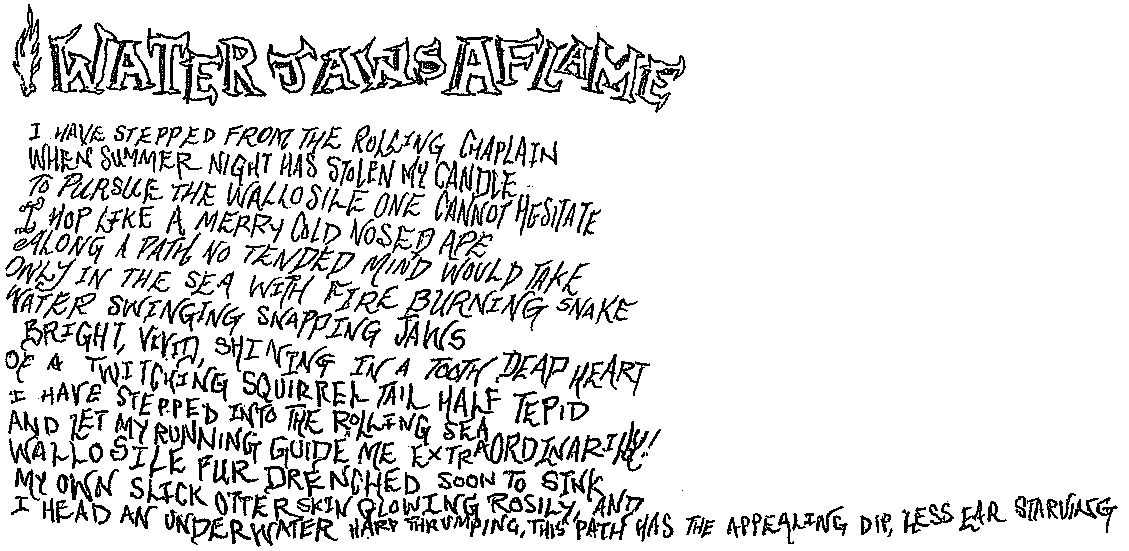 WATER JAWS AFLAME
I HAVE STEPPED FROM THE ROLLING CHAPLAIN
WHEN SUMMER NIGHT HAS STOLEN MY CANDLE
TO PURSUE THE WALLOSILE ONE CANNOT HESITATE
I HOP LIKE A MERRY COLD NOSED APE
ALONG A PATH NO TENDED MIND WOULD TAKE
ONLY IN THE SEA WITH FIRE BURNING SNAKE
WATER SWINGING SNAPPING JAWS
BRIGHT, VIVID, SHINING IN A TOOTH DEAP HEART
OF A TWITCHING SQUIRREL TAIL HALF TEPID
I HAVE STEPPED INTO THE ROLLING SEA
AND LET MY RUNNING GUIDE ME EXTRAORDINARILY!
WALLOSILE FUR DRENCHED SOON TO SINK
MY OWN SLICK OTTER SKIN GLOWING ROSILY, AND
I HEAD AN UNDERWATER HARP THRUMPING, THIS PATH HAS THE APPEALING DIP, LESS EAR STARVING